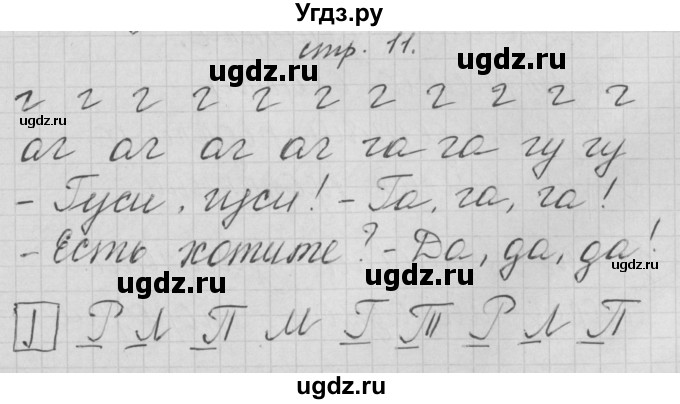 Угдз.ру
стр. 11.
ugdz.ru ugdz.ru
г г г г г г г г г г г
ugdz.ru
аг аг аг аг га га гу гу
- Гуси, гуси! - Га, га, га!
- Есть хотите? - Да, да, да!
ugdz.ru
ugdz.ru ugdz.ru
Г Р Л П М Г Т Р Л П
ugdz.ru